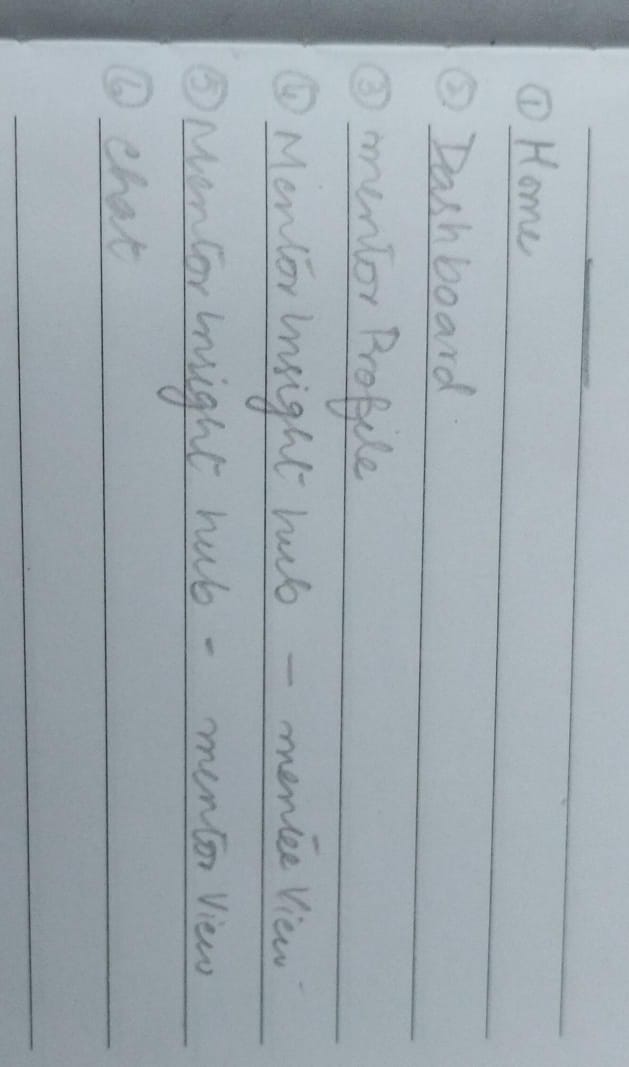 ① Home
② Dashboard
③ mentor Profile
④ Mentor Insight hub - mentee View
⑤ Mentor Insight hub - mentor View
⑥ chat